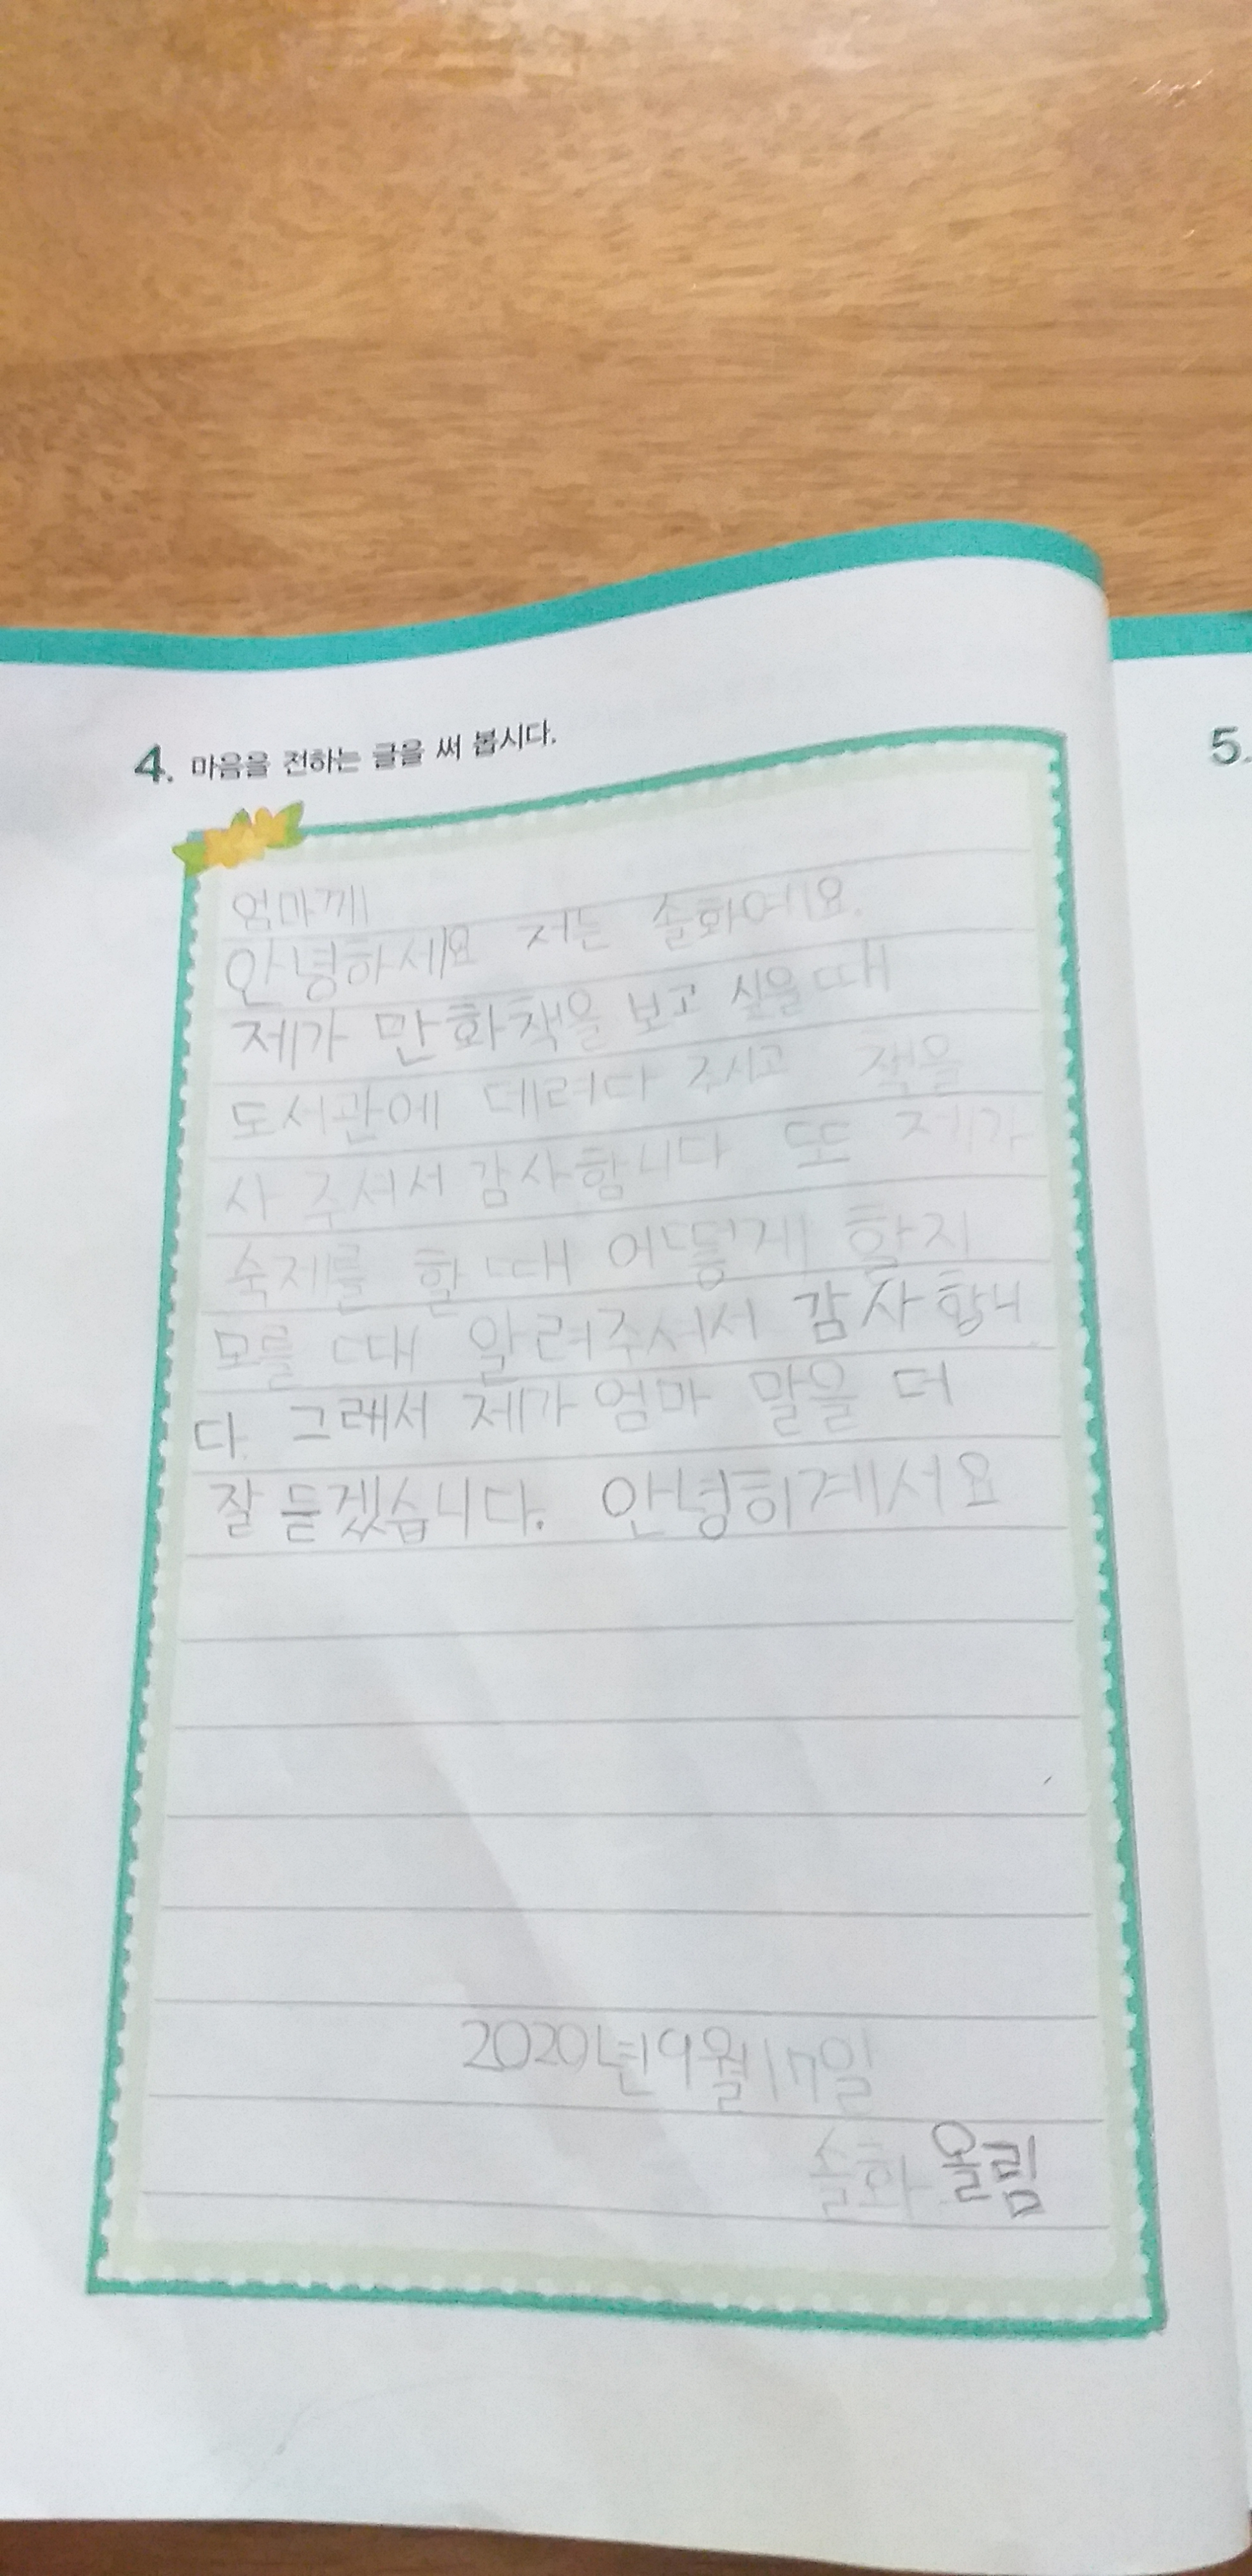 4. 마음을 전하는 글을 써 봅시다.
엄마께
안녕하세요 저는 솔화예요.
제가 만화책을 보고 싶을 때
도서관에 데려다 주시고 책을
사 주셔서 감사합니다 또 제가
숙제를 할 때 어떻게 할지
모를 때 알려주셔서 감사합니
다. 그래서 제가 엄마 말을 더
잘 듣겠습니다. 안녕히계서요
2020년9월17일
솔화 올림
5.